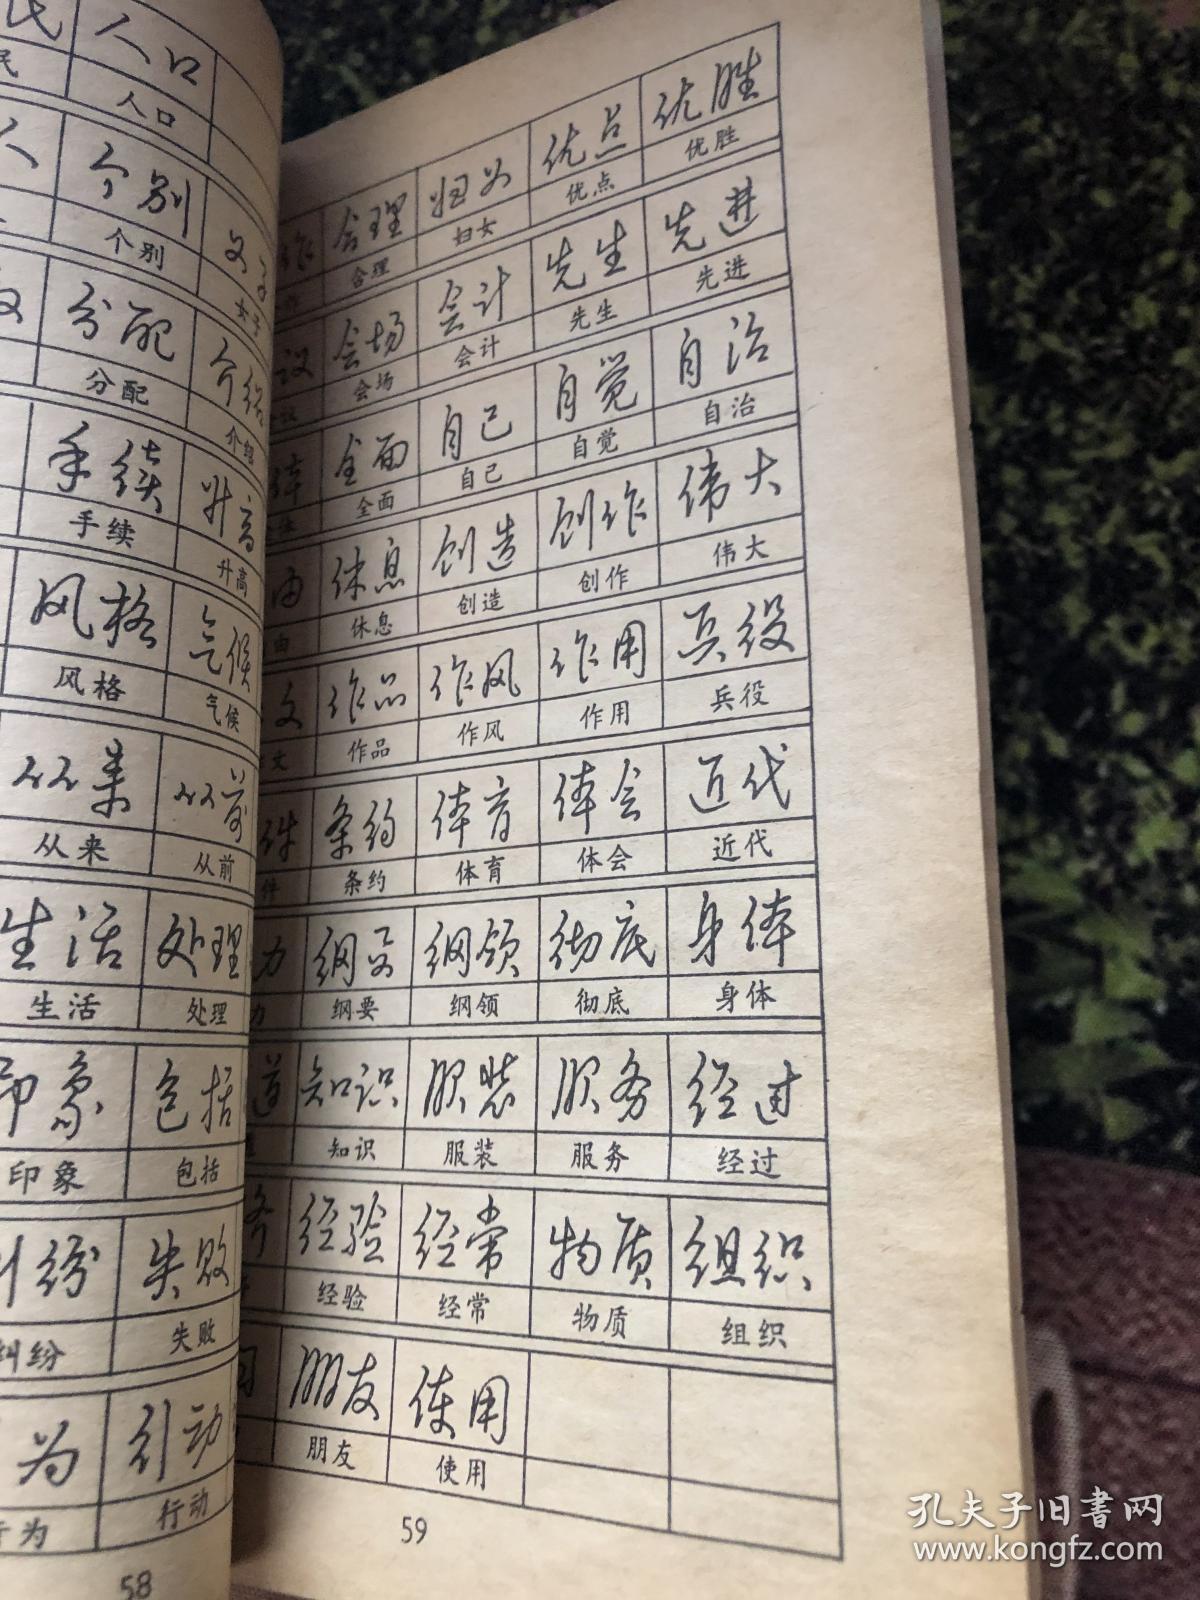 人口
人口
个别 父子
个别 女子
分配 介绍
分配 介绍
手续 升高
手续 升高
风格 气候
风格 气候
从来 从前
从来 从前
生活 处理
生活 处理
印象 包括
印象 包括
纷 失败
纠纷 失败
为 行动
为 行动
58
合理 妇女 优点 优胜
合理 妇女 优点 优胜
议 会场 会计 先生 先进
议 会场 会计 先生 先进
全面 自己 自觉 自治
全面 自己 自觉 自治
由 休息 创造 创作 伟大
由 休息 创造 创作 伟大
文 作品 作风 作用 兵役
文 作品 作风 作用 兵役
件 条约 体育 体会 近代
件 条约 体育 体会 近代
力 纲要 纲领 彻底 身体
力 纲要 纲领 彻底 身体
道 知识 服装 服务 经过
知识 服装 服务 经过
经验 经常 物质 组织
经验 经常 物质 组织
朋友 使用
朋友 使用
59
孔夫子旧書网
www.kongfz.com